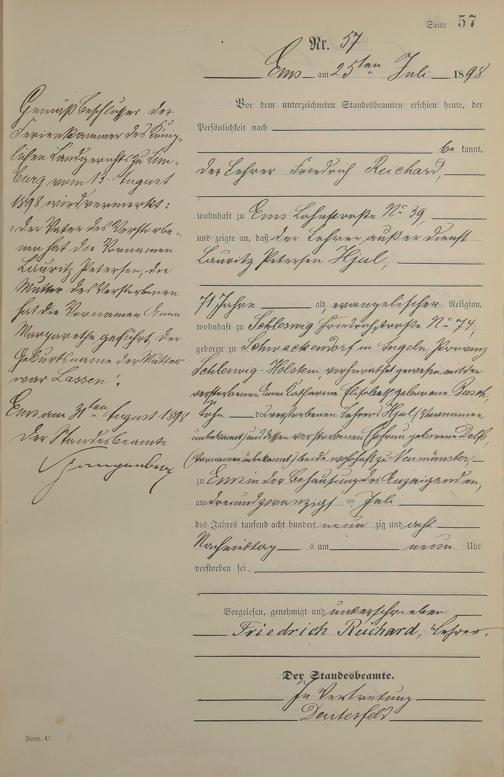 Seite 57
Nr. 57
Ems am 25ten Juli 1898
Vor dem unterzeichneten Standesbeamten erschien heute, der
Persönlichkeit nach
be kannt,
der Lehrer Friedrich Reichard,
wohnhaft zu Ems Lahnstraße No 39,
und zeigte an, daß der Lehrer außer Dienst
Lauritz Petersen Hjul,
71 Jahre alt evangelischer Religion,
wohnhaft zu Schleswig Friedrichstraße No 74,
geboren zu Schwackendorf in Angeln Provinz
Schleswig-Holstein, verheirathet gewesen mit der
verstorbenen Anna Katharina Elisabeth geborene
Sohn des verstorbenen Lehrers Hjul (Vornamen
unbekannt) und dessen verstorbenen Ehefrau geborenen
(Vornamen unbekannt) beide wohnhaft zu Neumünster
zu Ems in der Behausung des Anzeigenden,
am dreiundzwanzigsten Juli
des Jahres tausend acht hundert neun zig und acht
Nachmittag s um neun Uhr
verstorben sei.
Vorgelesen, genehmigt und unterschrieben
Friedrich Reichard, Lehrer.
Der Standesbeamte.
In Vertretung
Deutesfeld
Gemäß Beschlusses der
Ferienkammer des König-
lichen Landgerichts zu Lim-
burg vom 13. August
1898 wird vermerkt:
"der Vater des Verstorbe-
nen hat die Vornamen
Lauritz Petersen, die
Mutter des Verstorbenen
hat die Vornamen Anna
Margarethe geführt, der
Geburtsname der Mutter
war Lassen".
Ems am 31ten August 1898
Der Standesbeamte
Form. C.